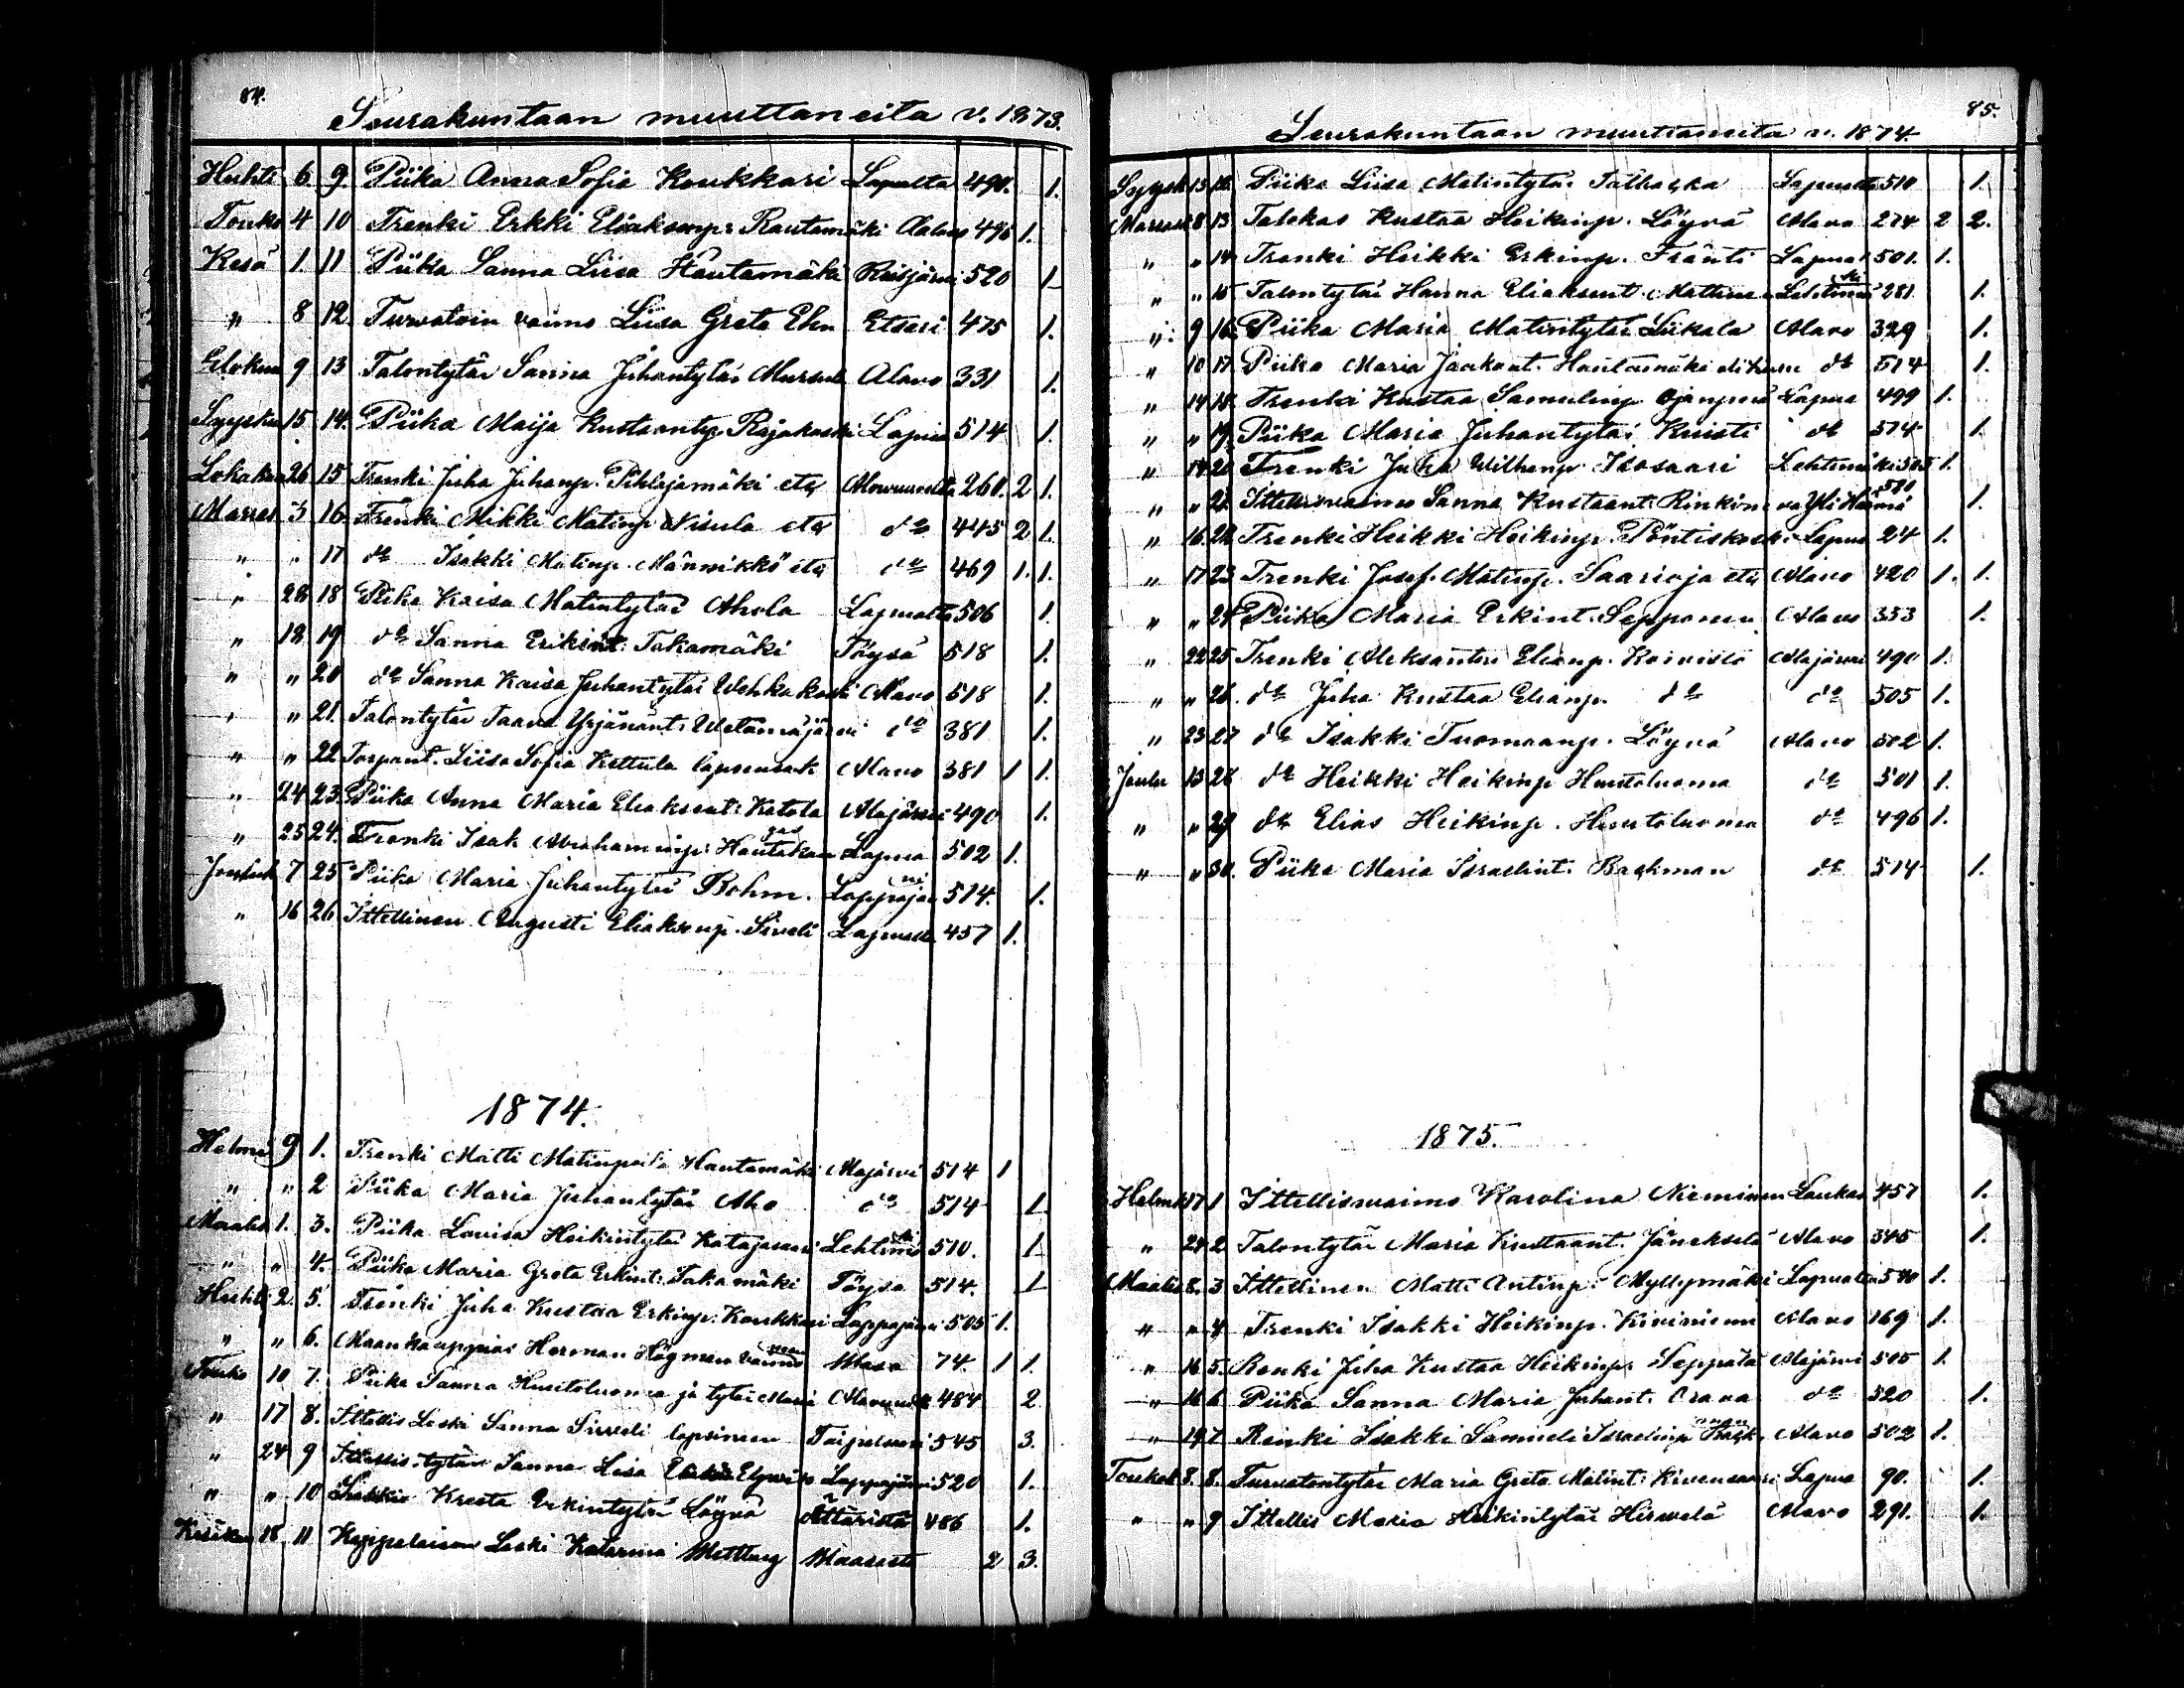 84.
Seurakuntaan muuttaneita v. 1873.
Huhti 6 9 Piika Anna Sofia Koukkari Lapualta 490. 1.
Touko 4 10 Trenki Erkki Eliaksenp. Rautamäki Alavo 496 1.
Kesä 1. 11 Piika Sanna Liisa Hautamäki Reisjärvi 520 1
" 8 12 Turvatoin vaimo Liisa Greta Ehn Etseri 475 1.
Elokuu 9 13 Talontytär Sanna Juhantytär Alavo 331 1.
Syysku 15 14. Piika Maija Kustaantyr Rajakoski Lapua 514 1.
Lokakuu 26 15 Trenki Juha Juhanp. Pihlajamäki etr Alavuudelta 260. 2 1.
Marras 3 16. Trenki Mikki Matinp Nisula etr do 445 2 1.
" " 17 do Isakki Matinp. Männikkö etr do 469 1. 1.
" 28 18 Piika Kaisa Matintytär Ahola Lapualta 506 1.
" 18 19 do Sanna Erikint. Takamäki Töysä 518 1.
" " 20 do Sanna Kaisa Juhantytär Alavo 518 1.
" " 21. Talontytär Taava Yrjänänt. do 381 1.
" " 22 Torpant. Liisa Sofia Kettula Alavo 381 1 1.
" 24 23. Piika Anna Maria Eliaksent. Ketola Alajärvi 490 1.
" 25 24. Trenki Isak Abrahaminp. Lapua 502 1.
Jouluk 7 25 Piika Maria Juhantytär Bohm. Lappajärvi 514. 1.
" 16 26 Ittellinen Augusti Eliaksenp. Siveli Lapualta 457 1.
1874.
Helmi 9 1. Trenki Matti Matinpoika Hautamäki Alajärvi 514 1
" " 2 Piika Maria Juhantytär Aho do 514 1
Maalis 1. 3. Piika Lovisa Heikintytär Katajasaari Lehtimäki 510. 1
" " 4. Piika Maria Greta Erkint. Takamäki Töysä 514. 1
Huhti 2. 5. Trenki Juha Kustaa Erkinp. Koukkari Lappajärvi 505 1.
" " 6. Maankauppias Herman Högman vaimo Waasa 74. 1 1.
Touko 10 7. Piika Sanna Huvitoluoma ja tytär Maria Alavuude 484 2
" 17 8. Ittellis Leski Sanna Siveli lapsineen Taipalsaari 545 3.
" 24 9 Ittellis tytär Sanna Lisa Lappajärvi 520 1.
" " 10 Kreeta Erkintytär Löyvä Ätsäristä 486 1.
Kesäkuu 18 11 Kappalaisen Leski Katarina Waasasta 2 3.
85.
Seurakuntaan muuttaneita v. 1874.
Syysk 13 12. Piika Liisa Matintytär Lapualta 510 1.
Marrask 8 13 Talokas Kustaa Heikinp. Löyvä Alavo 274 2 2.
" " 14 Trenki Heikki Erkinp. Fränti Lapua 501. 1.
" " 15 Talontytär Hanna Eliaksent. Lehtimäki 281 1.
" 9 16 Piika Maria Matintytär Liikala Alavo 329 1.
" 10 17 Piika Maria Jaakont. Hautamäki do 514 1.
" 14 18. Trenki Kustaa Samulinp. Lapua 499 1.
" " 19 Piika Maria Juhantytär Knisti do 514 1.
" 14 20 Trenki Juha Wilhenp. Isosaari Lehtimäki 505 1.
" " 21. Ittellisvaimo Sanna Kustaant. Rinkine Yli Härmä 510 1.
" 16 22 Trenki Heikki Heikinp. Pöntiskoski Lapua 24 1.
" 17 23 Trenki Josef. Matinp. Saarioja etr Alavo 420 1. 1.
" " 24 Piika Maria Erkint. Sepponen Alavo 353 1.
" 22 25 Trenki Aleksanteri Elianp. Koivisto Alajärvi 490 1.
" " 26 do Juha Kustaa Elianp. do do 505 1.
" 23 27 do Isakki Tuomaanp. Löyvä Alavo 502 1.
Joulu 13 28 do Heikki Heikinp Huvitoluoma do 501 1.
" " 29 do Elias Heikinp. Huvitoluoma do 496 1.
" " 30. Piika Maria Israelint. Backman do 514 1.
1875.
Helmik 17 1 Ittellisvaimo Karolina Nieminen Laukaa 457 1.
" 24 2 Talontytär Maria Kustaant. Jäneksela Alavo 345 1.
Maalis 8. 3 Ittellinen Matti Antinp. Myllymäki Lapualta 540 1.
" " 4 Trenki Isakki Heikinp. Kiviniemi Alavo 169 1.
" 16 5. Renki Juha Kustaa Heikinp. Seppälä Alajärvi 505 1.
" 16 6 Piika Sanna Maria Juhant. Orava do 520 1.
" 19 7 Renki Isakki Samueli Israelinp Alavo 502 1.
Toukok 8. 8. Turvatontytär Maria Greta Matint. Kivensaari Lapua 90. 1.
" " 9 Ittellis Maria Heikintytär Hirvelä Alavo 291. 1.